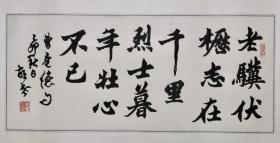 老驥伏
櫪志在
千里
烈士暮
年壮心
不已
曹孟德句
卯秋日